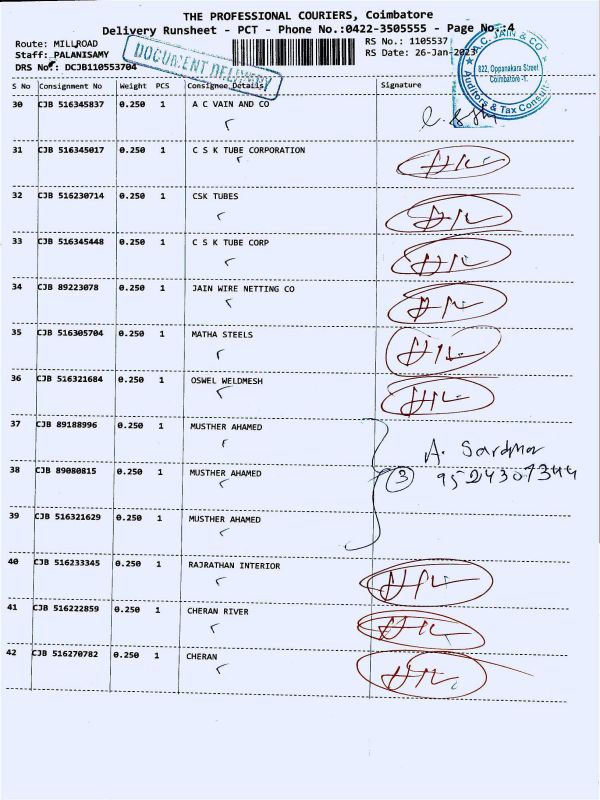 THE PROFESSIONAL COURIERS, Coimbatore
Delivery Runsheet - PCT - Phone No.:0422-3505555 - Page No.:4
Route: MILLROAD
Staff: PALANISAMY
DRS No.: DCJB110553704
RS No.: 1105537
RS Date: 26-Jan-2023
DOCUMENT DELIVERY
A.C. JAIN & CO
822, Oppanakara Street
Coimbatore -1.
Auditors & Tax Consultants
S No Consignment No Weight PCS Consignee Details Signature
30 CJB 516345837 0.250 1 A C VAIN AND CO
31 CJB 516345017 0.250 1 C S K TUBE CORPORATION
32 CJB 516230714 0.250 1 CSK TUBES
33 CJB 516345448 0.250 1 C S K TUBE CORP
34 CJB 89223078 0.250 1 JAIN WIRE NETTING CO
35 CJB 516305704 0.250 1 MATHA STEELS
36 CJB 516321684 0.250 1 OSWEL WELDMESH
37 CJB 89188996 0.250 1 MUSTHER AHAMED
A. Sardhar
38 CJB 89080815 0.250 1 MUSTHER AHAMED
3 9524307344
39 CJB 516321629 0.250 1 MUSTHER AHAMED
40 CJB 516233345 0.250 1 RAJRATHAN INTERIOR
41 CJB 516222859 0.250 1 CHERAN RIVER
42 CJB 516270782 0.250 1 CHERAN